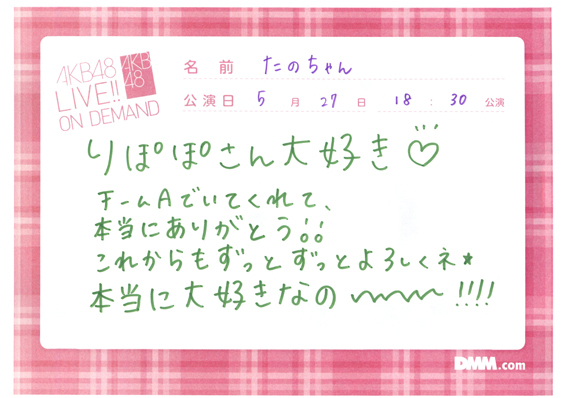 AKB48
LIVE!!
ON DEMAND
AKB
48
名 前 たのちゃん
公演日 5 月 27 日 18 : 30 公演
りぽぽさん大好き♡
チームAでいてくれて、
本当にありがとう!!
これからもずっとずっとよろしくネ★
本当に大好きなの〜〜〜!!!!
DMM.com